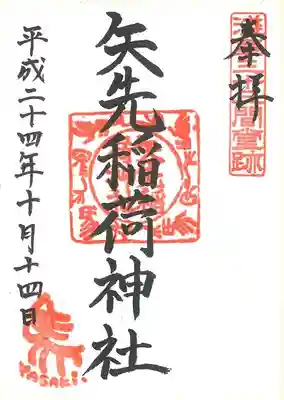 奉拝
浅草三十三間堂跡
矢先稲荷神社
平成二十四年十月十四日
YASAKI.